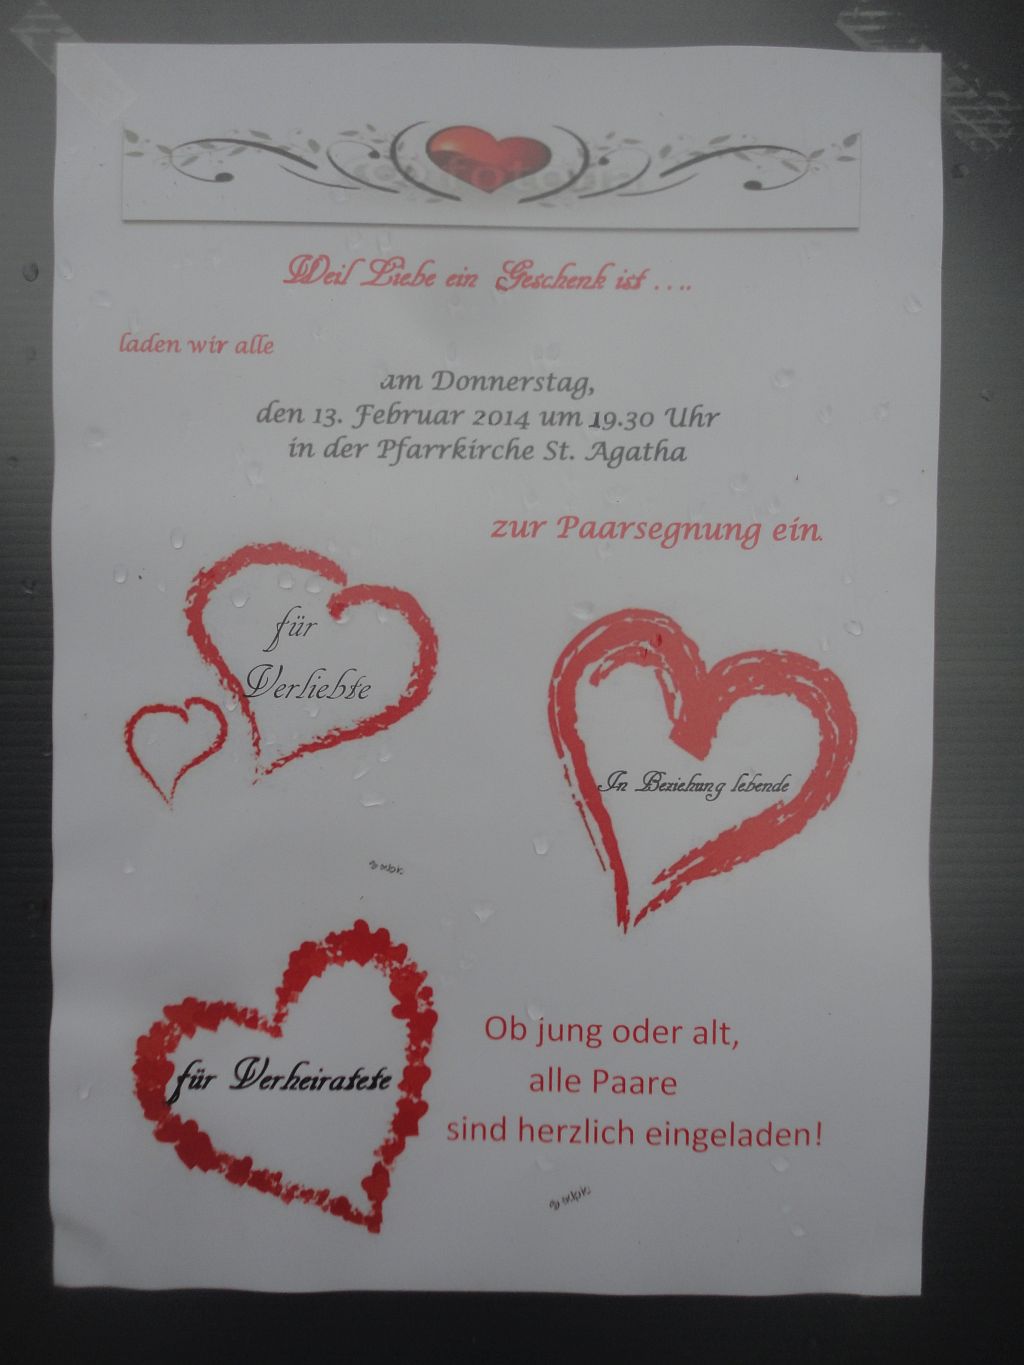 Weil Liebe ein Geschenk ist ....
laden wir alle
am Donnerstag,
den 13. Februar 2014 um 19.30 Uhr
in der Pfarrkirche St. Agatha
zur Paarsegnung ein.
für
Verliebte
In Beziehung lebende
für Verheiratete
Ob jung oder alt,
alle Paare
sind herzlich eingeladen!